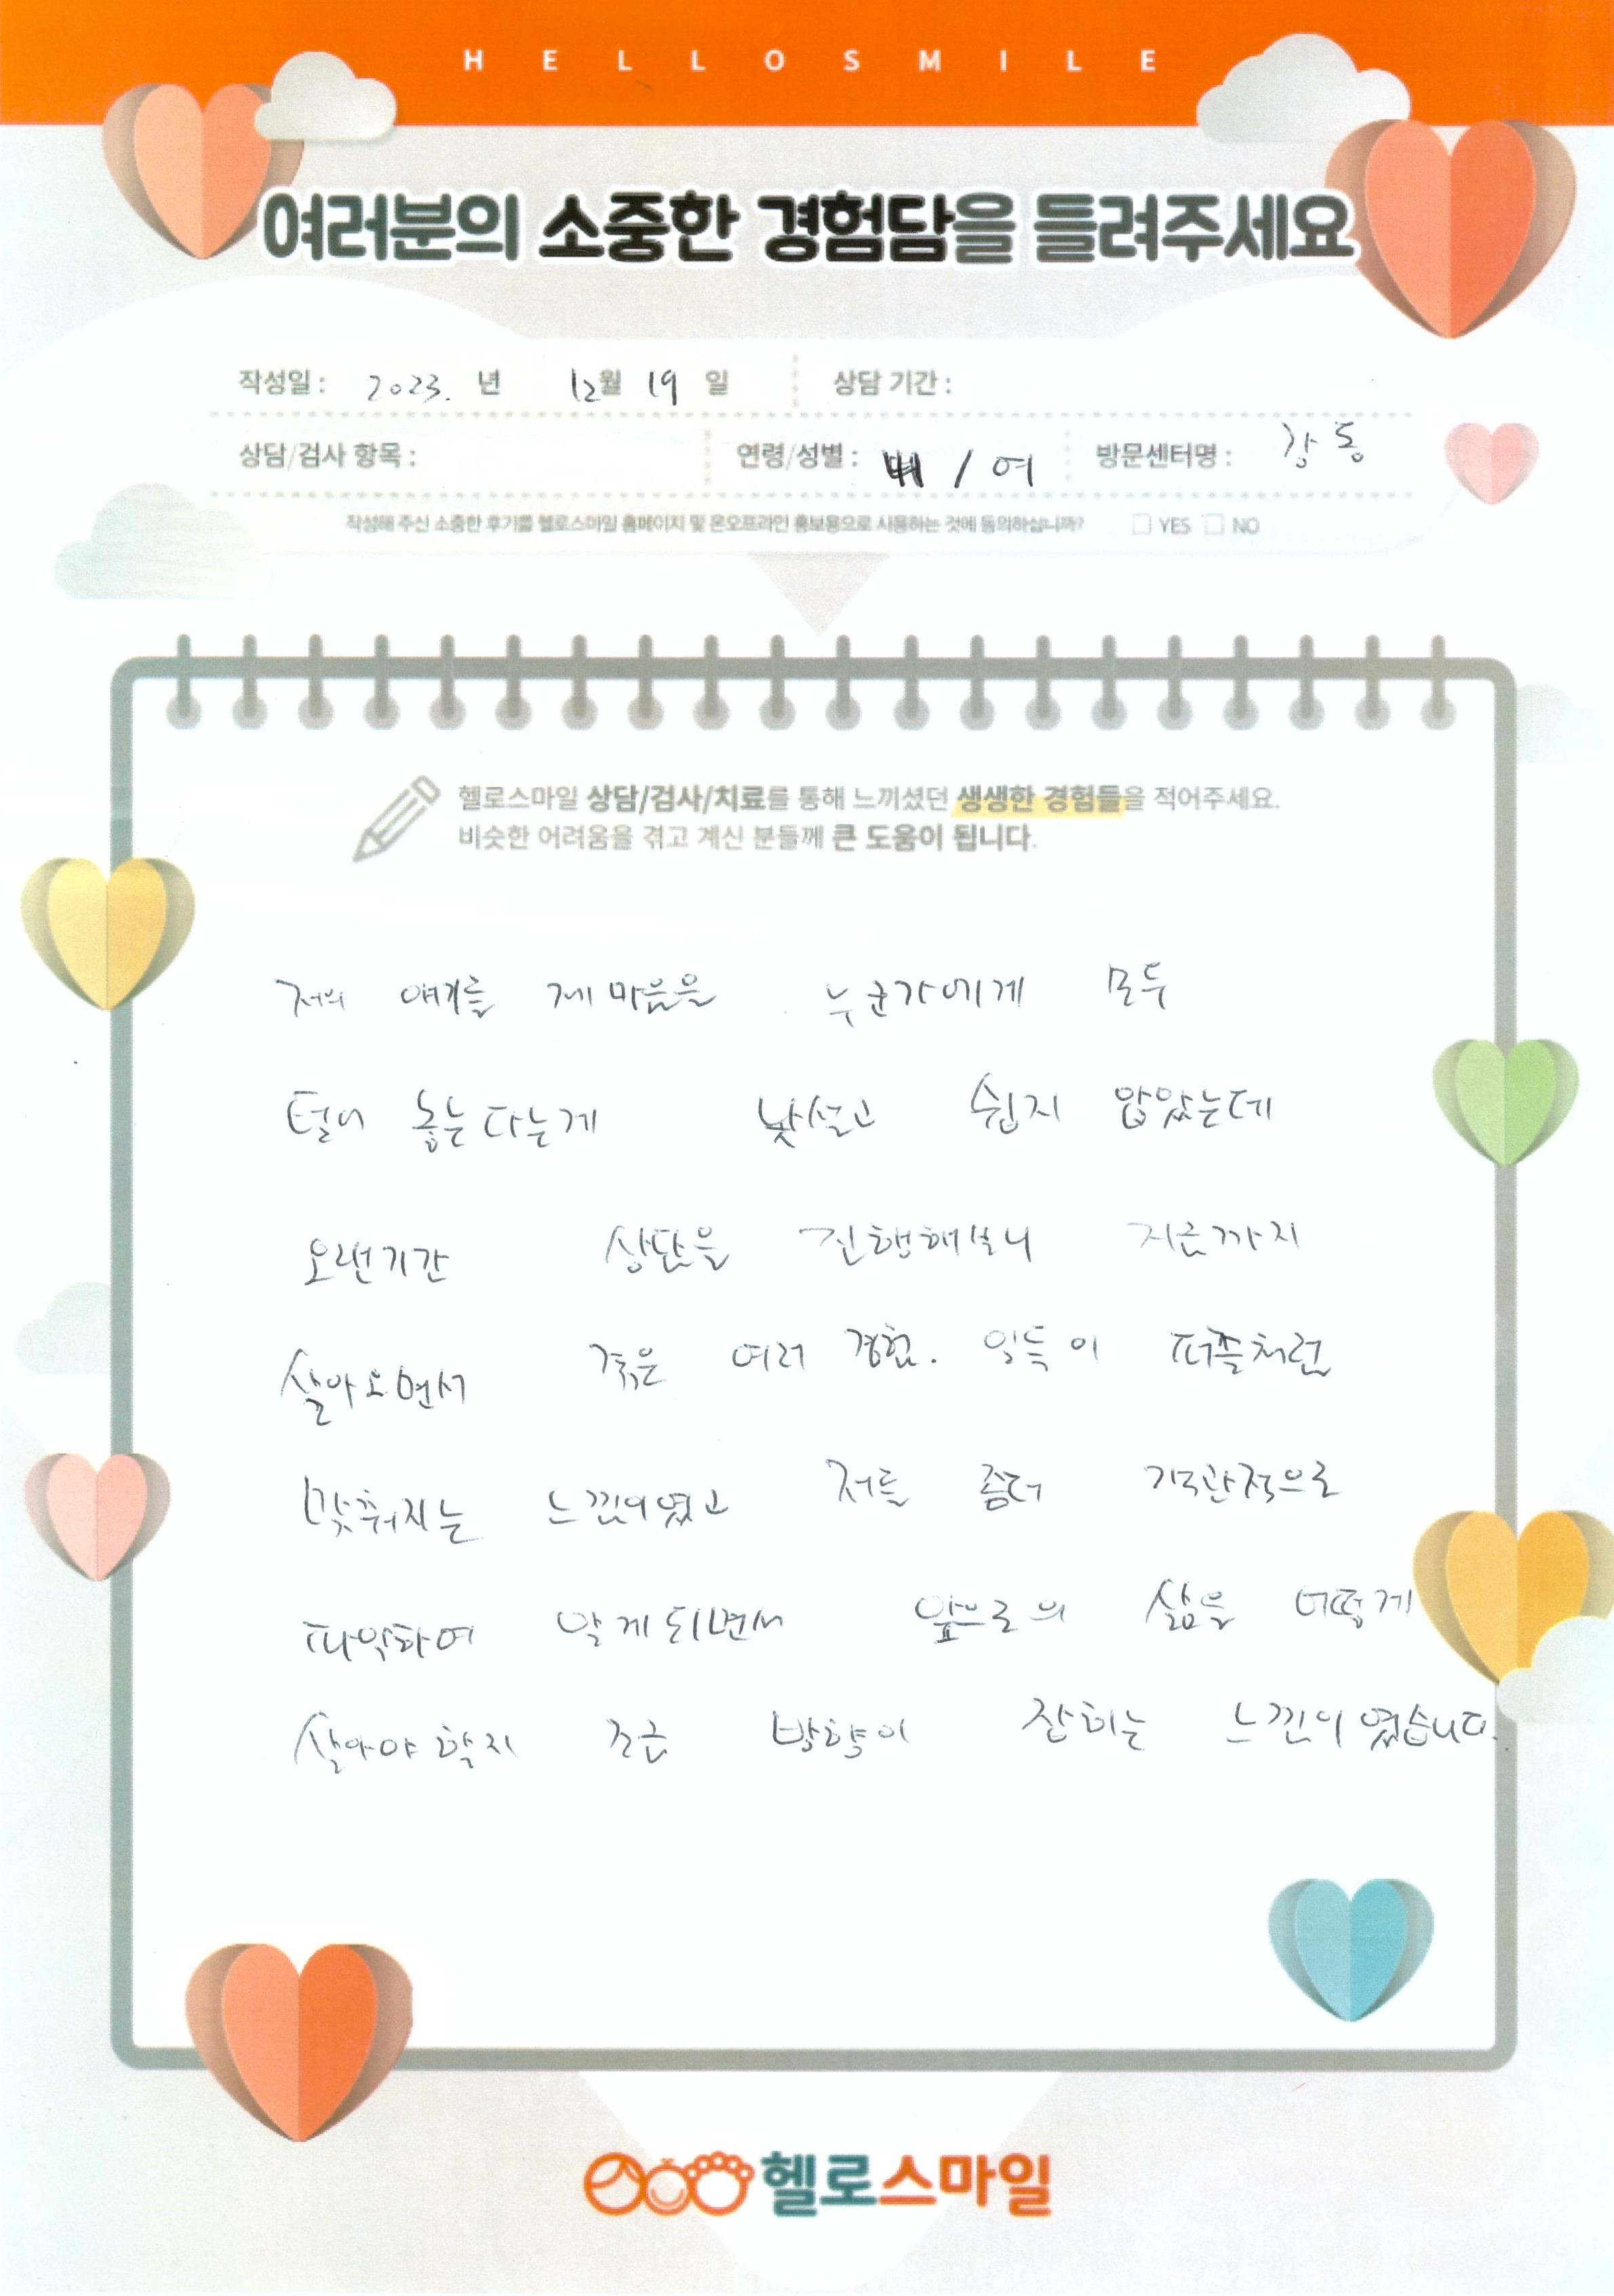 HELLOSMILE
여러분의 소중한 경험담을 들려주세요
작성일 : 2023. 년 12월 19 일 상담 기간 :
상담/검사 항목 : 연령/성별 : / 여 방문센터명 : 강동
작성해 주신 소중한 후기를 헬로스마일 홈페이지 및 온오프라인 홍보용으로 사용하는 것에 동의하십니까? YES NO
헬로스마일 상담/검사/치료를 통해 느끼셨던 생생한 경험들을 적어주세요.
비슷한 어려움을 겪고 계신 분들께 큰 도움이 됩니다.
저의 얘기를 제 마음을 누군가에게 모두
털어 놓는다는게 낯설고 쉽지 않았는데
오랜기간 상담을 진행해보니 지금까지
살아오면서 겪은 여러 경험. 일들이 퍼즐처럼
맞춰지는 느낌이였고 저를 좀더 객관적으로
파악하여 알게되면서 앞으로의 삶을 어떻게
살아야할지 조금 방향이 잡히는 느낌이였습니다.
헬로스마일